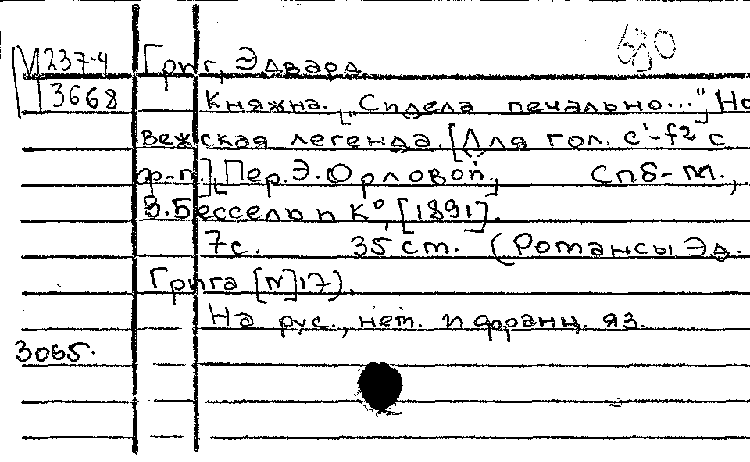 680
М 237-4 Григ, Эдвард
3668 Княжна. ["Сидела печально..."] Но
вежская легенда. [Для гол. c'-f2 с
ф.-п.], [Пер. Э. Орловой], Спб-М.,
В. Бессель и К°, [1891].
7 с. 35 см. (Романсы Эд.
Грига [N] 17).
На рус., нем. и франц. яз.
3065.